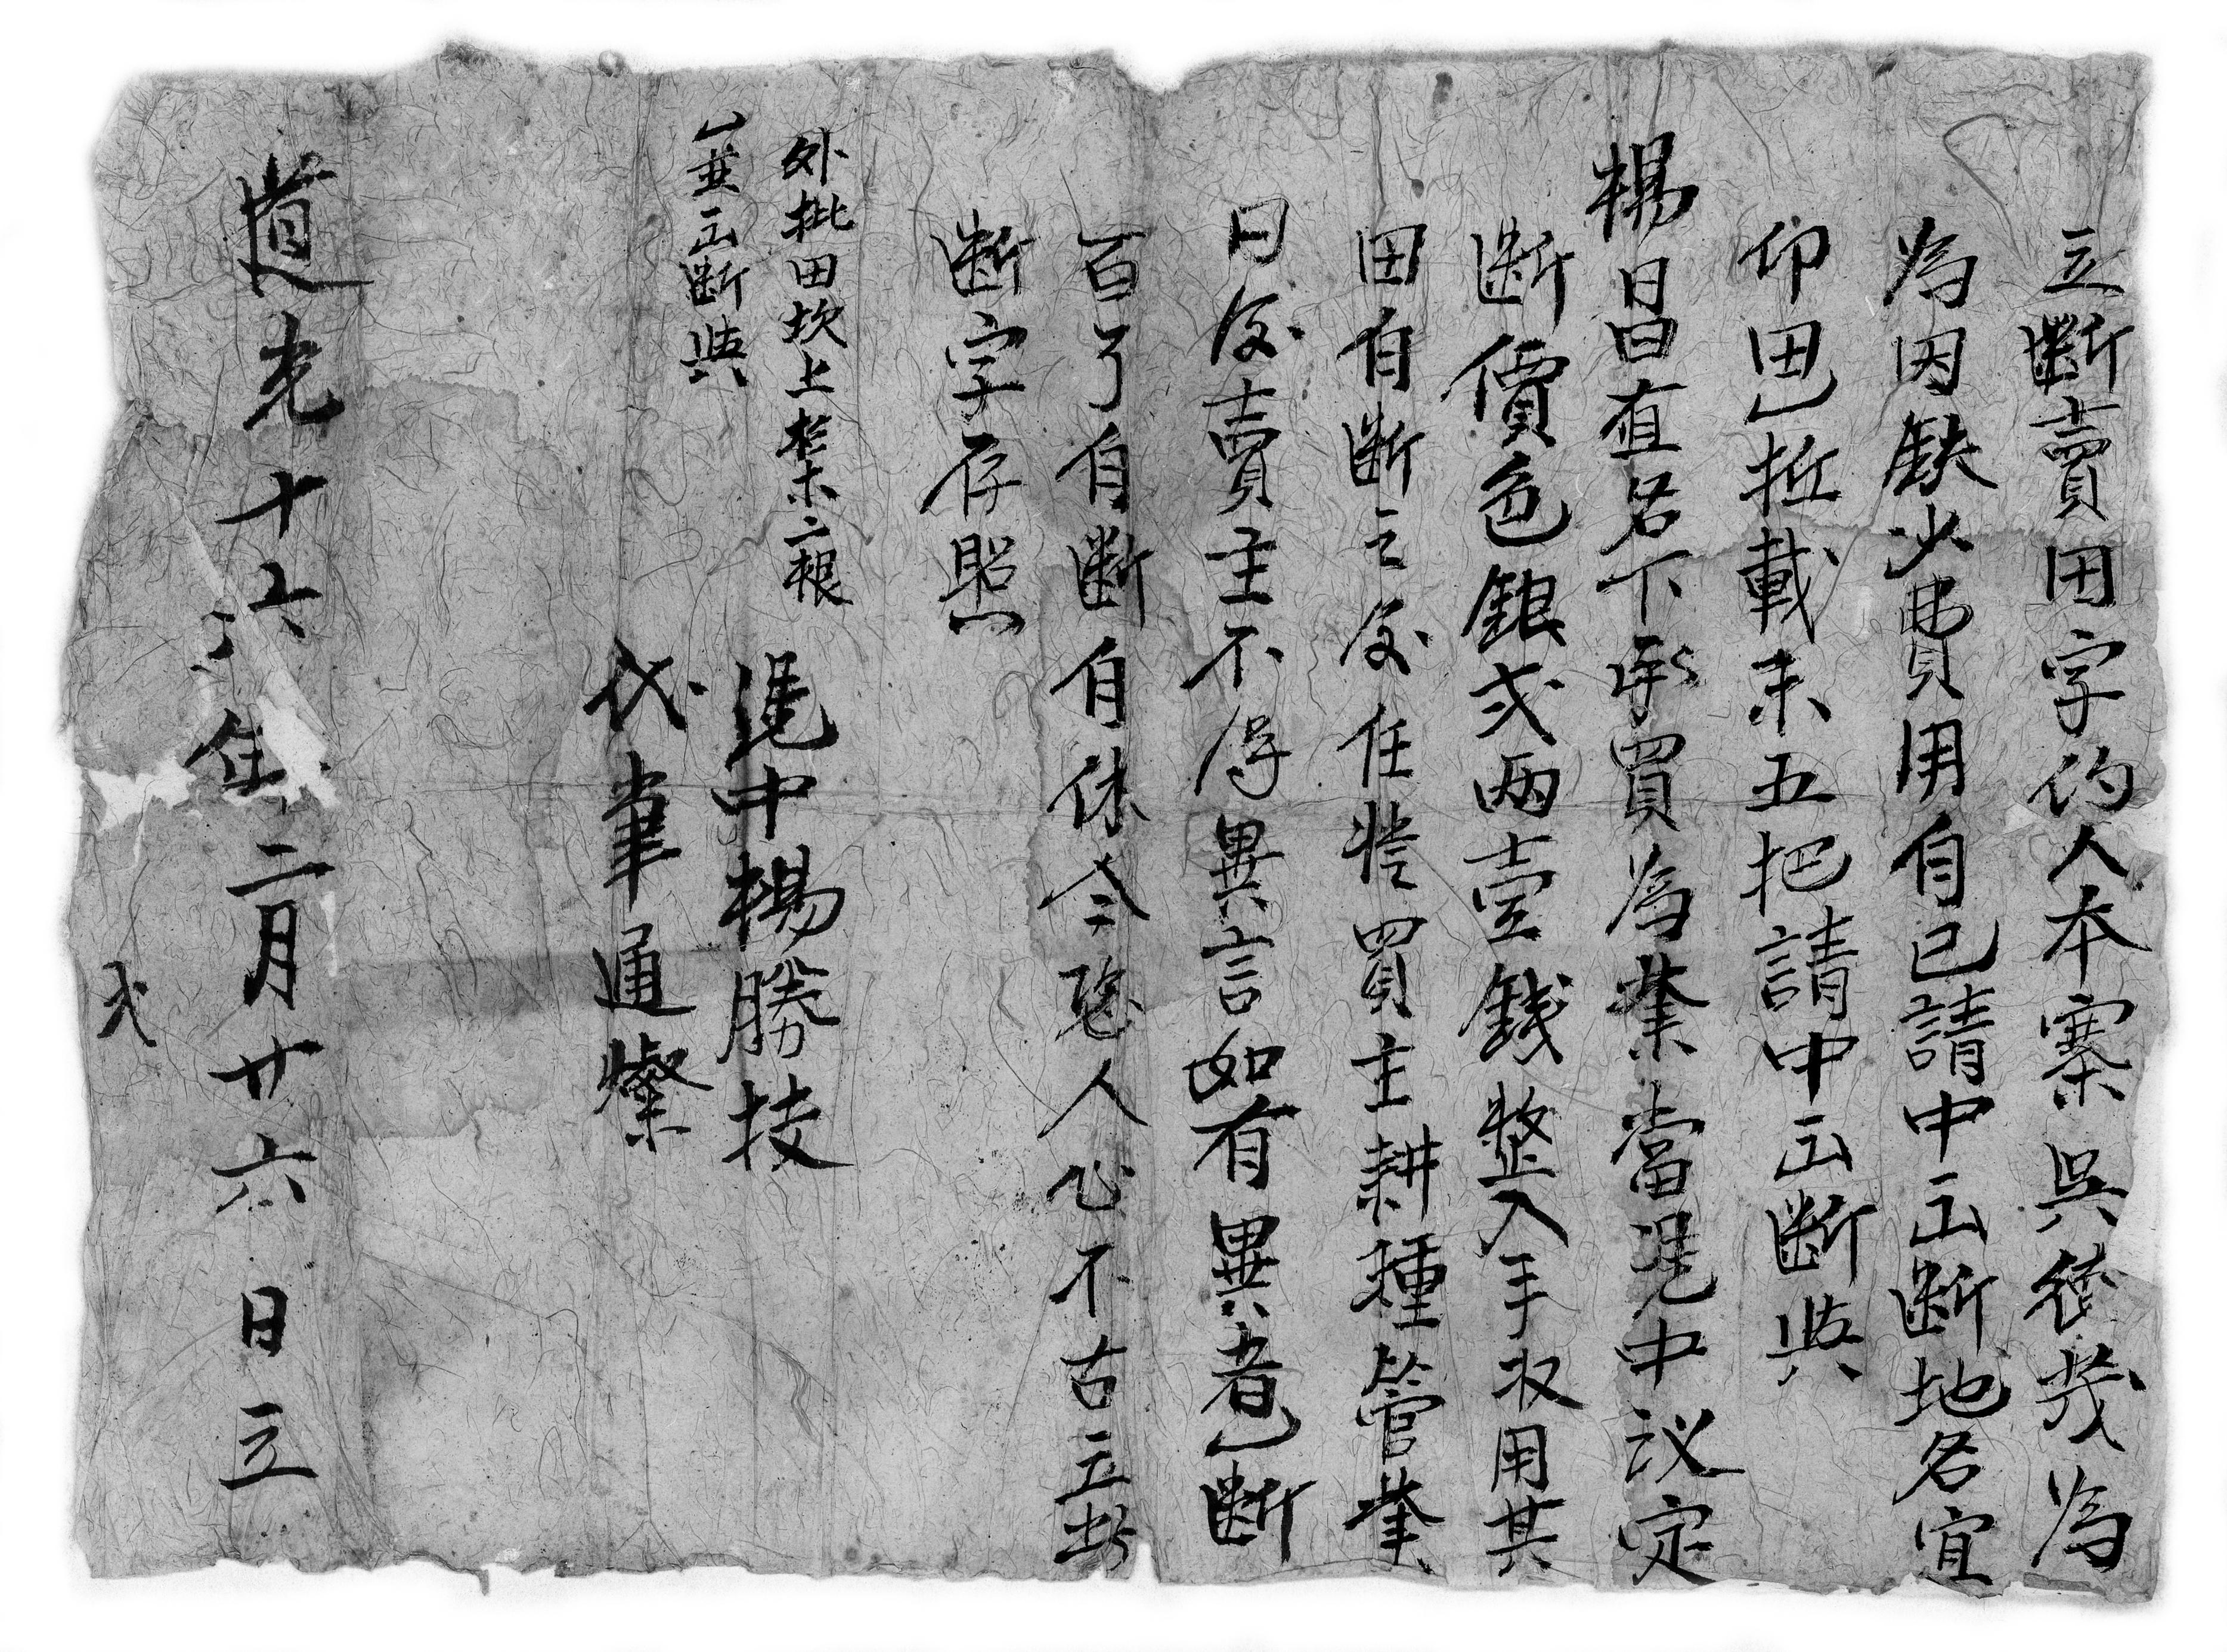 立斷賣田字约人本寨吳德茂為
為因缺少費用自已請中正断地名宜
仰田乙坵載禾五把請中正断與
楊昌直名下承買為業當凭中议定
断價色銀弍两壹錢整入手收用其
田自断之后任凭買主耕種管業
日后賣主不得異言如有異者乙断
百了自断自休今恐人心不古立此
断字存照
外批田坎上杉木二根
一並正断與
凭中楊勝技
代筆通燦
道光十六年二月廿六日立